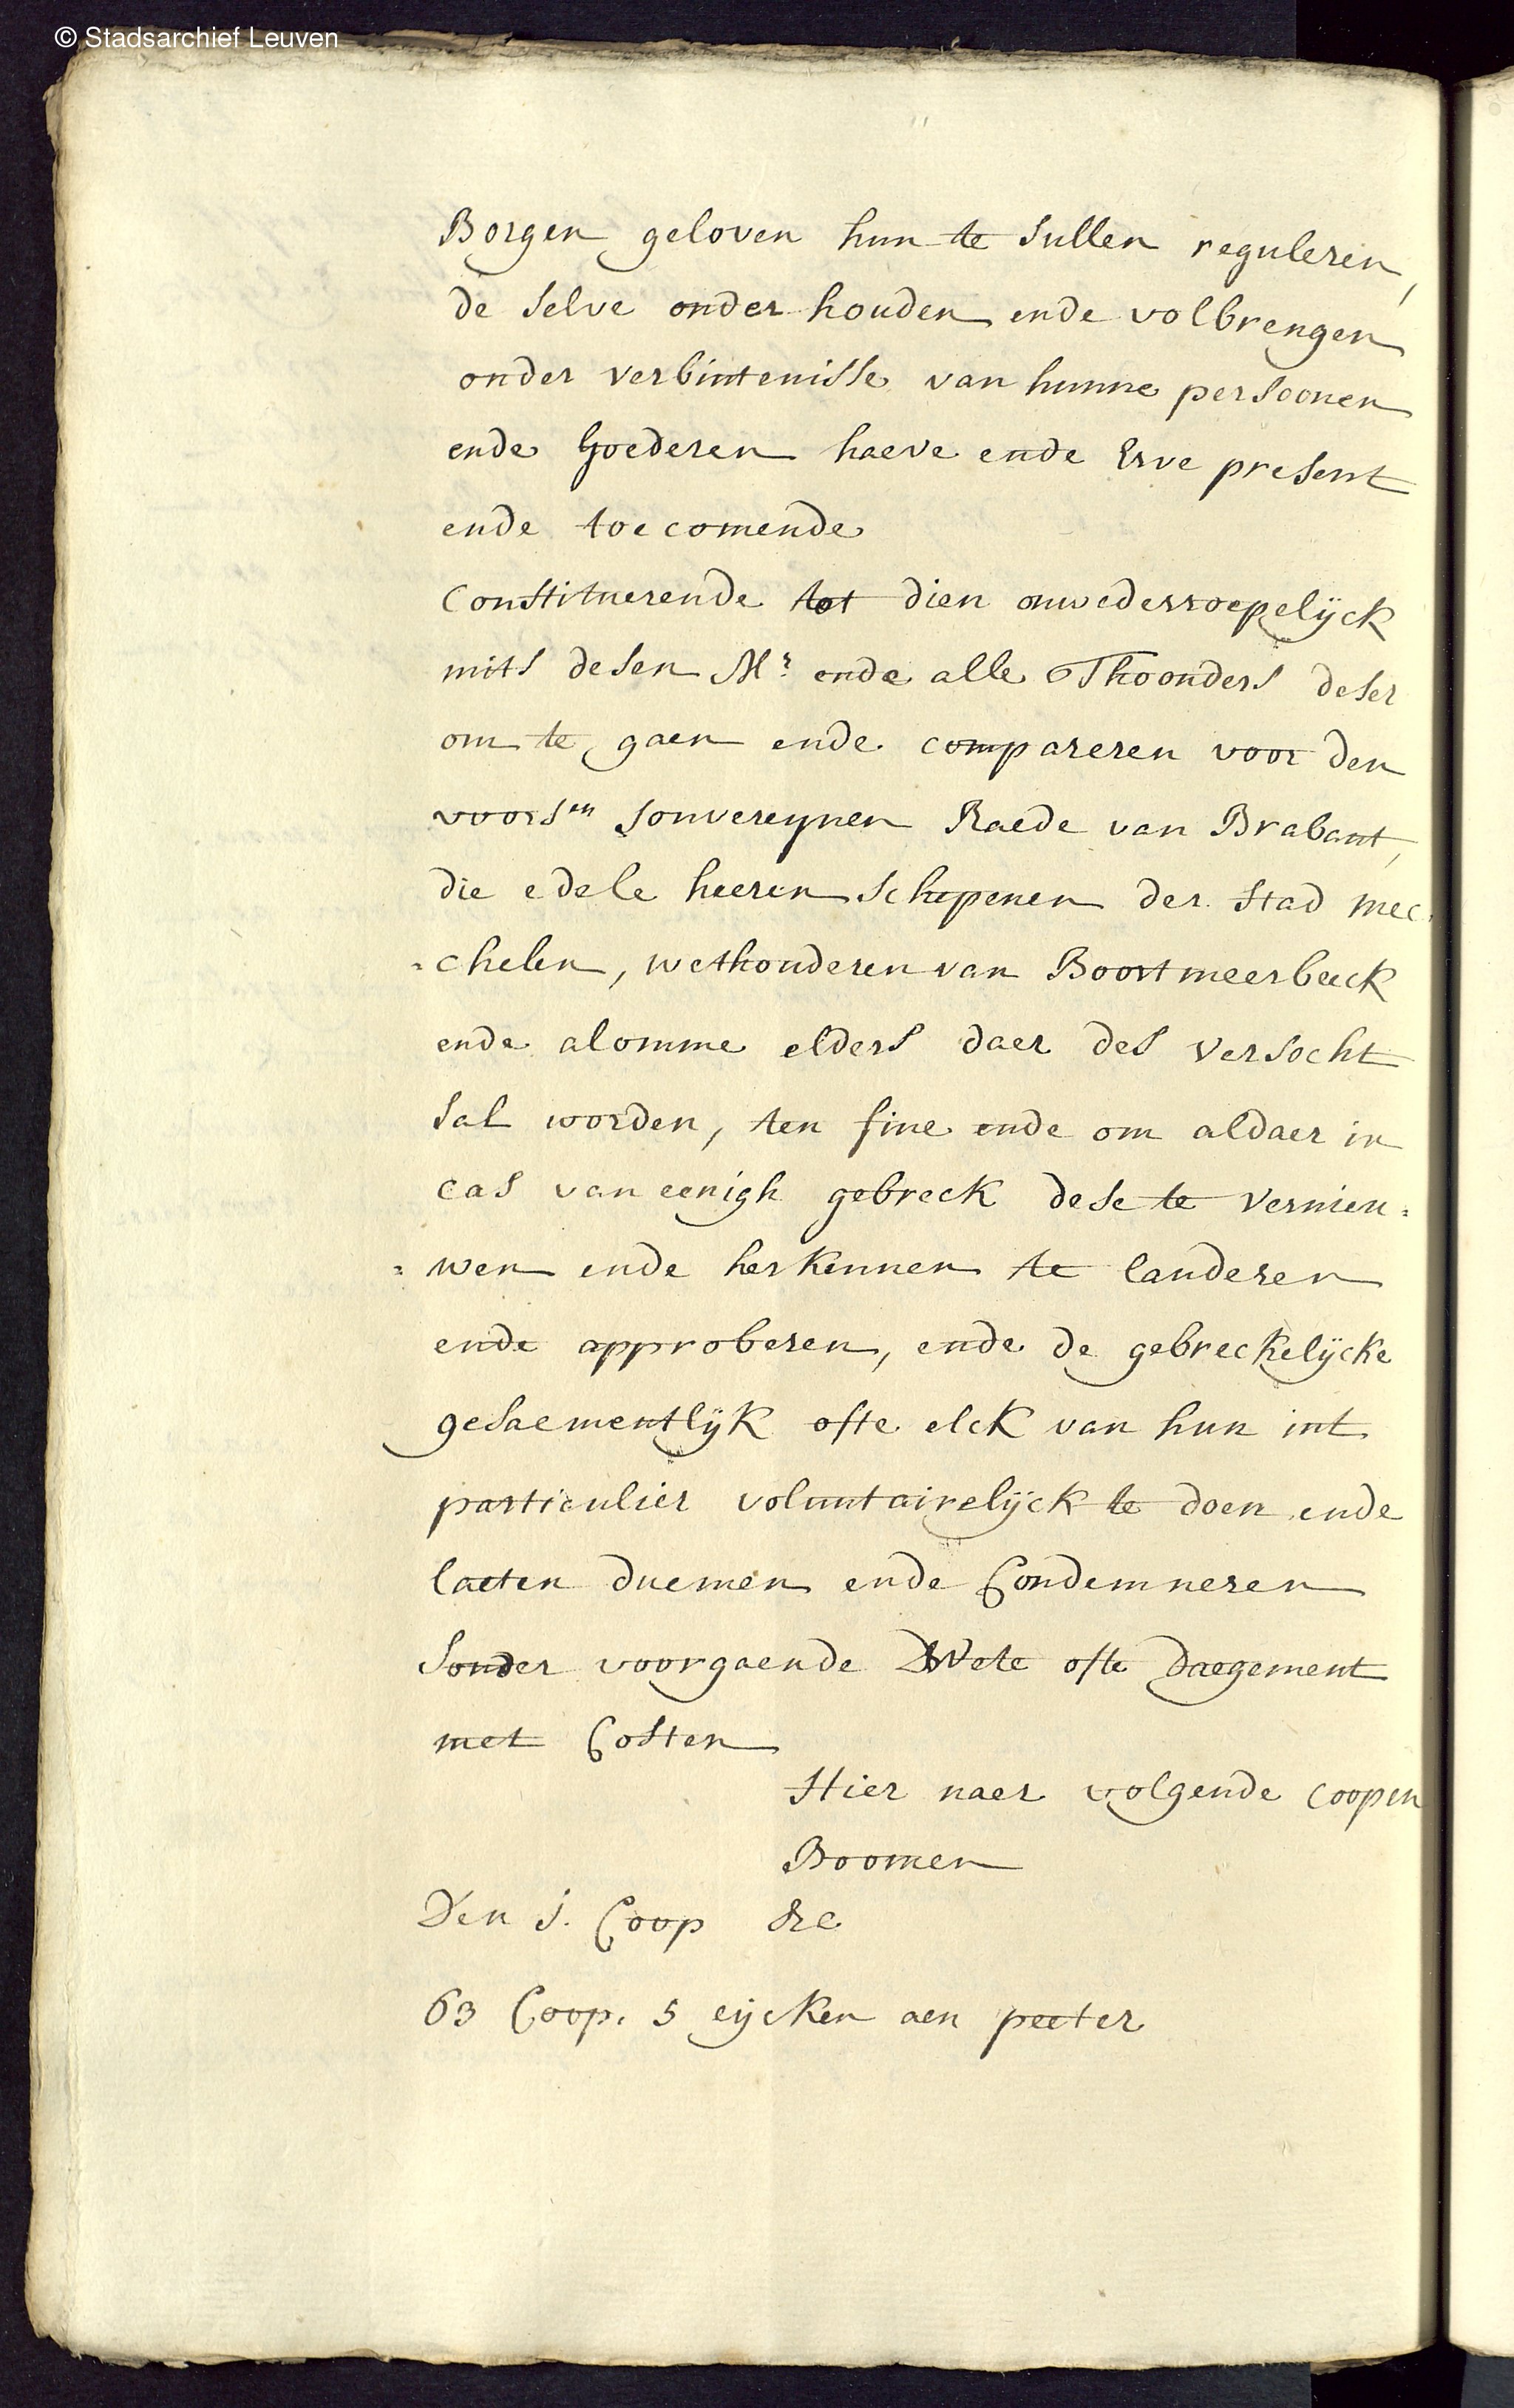 © Stadsarchief Leuven
Borgen geloven hun te sullen reguleren,
de selve onder houden ende volbrengen
onder verbintenisse van hunne persoonen
ende Goederen haeve ende Erve present
ende toecomende
Constituerende tot dien onwederroepelijck
mits desen Mr ende alle Thoonders deser
om te gaen ende compareren voor den
voorsen souvereynen Raede van Brabant,
die edele heeren schepenen der stad mec=
=chelen, wethouderen van Boortmeerbeeck
ende alomme elders daer des versocht
sal worden, ten fine ende om aldaer in
cas van eenigh gebreck dese te vernieu=
=wen ende herkennen te lauderen
ende approberen, ende de gebreckelijcke
gesaementlijk ofte elck van hun int
particulier voluntairelijck te doen ende
laeten duemen ende Condemneren
sonder voorgaende Wete ofte Daegement
met Costen
Hier naer volgende coopen
Boomen
Den j. Coop &c
63 Coop. 5 eijcken aen peeter